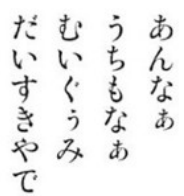 あんなぁ
うちもなぁ
むいぐぅみ
だいすきやで